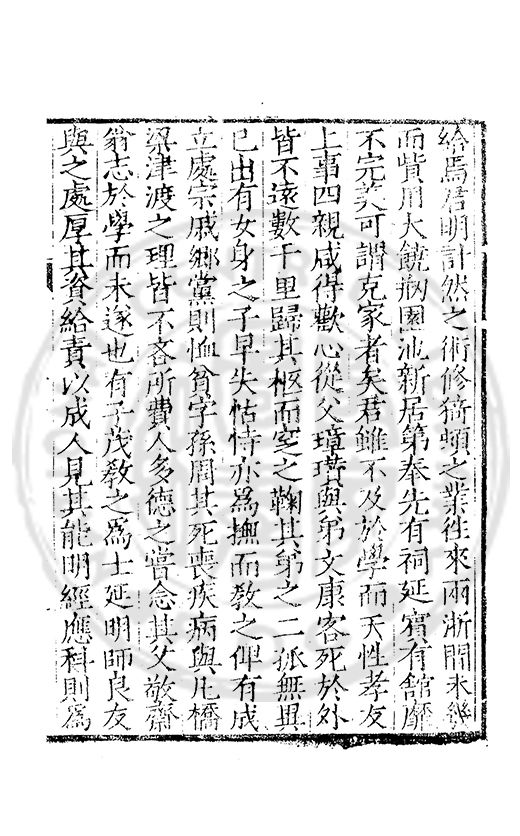 給焉居明計然之術修猗頓之業往來兩浙間未幾
而貲用大饒刱園池新居第奉先有祠延賓有舘靡
不完美可謂克家者矣君雖不及於學而天性孝友
上事四親咸得歡心從父璋瓚與弟文康客死於外
皆不遠數千里歸其柩而窆之鞠其弟之二孤無異
已出有女身之子早失怙恃亦爲撫而敎之俾有成
立處宗戚鄉黨則恤貧字孫周其死喪疾病與凡橋
梁津渡之理皆不吝所費人多德之嘗念其父敬齋
翁志於學而未遂也有子茂敎之爲士延明師良友
與之處厚其資給責以成人見其能明經應科則爲